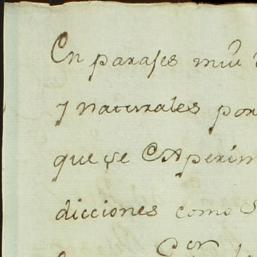 En parajes mui
y naturales por
que se Experim
dicciones como